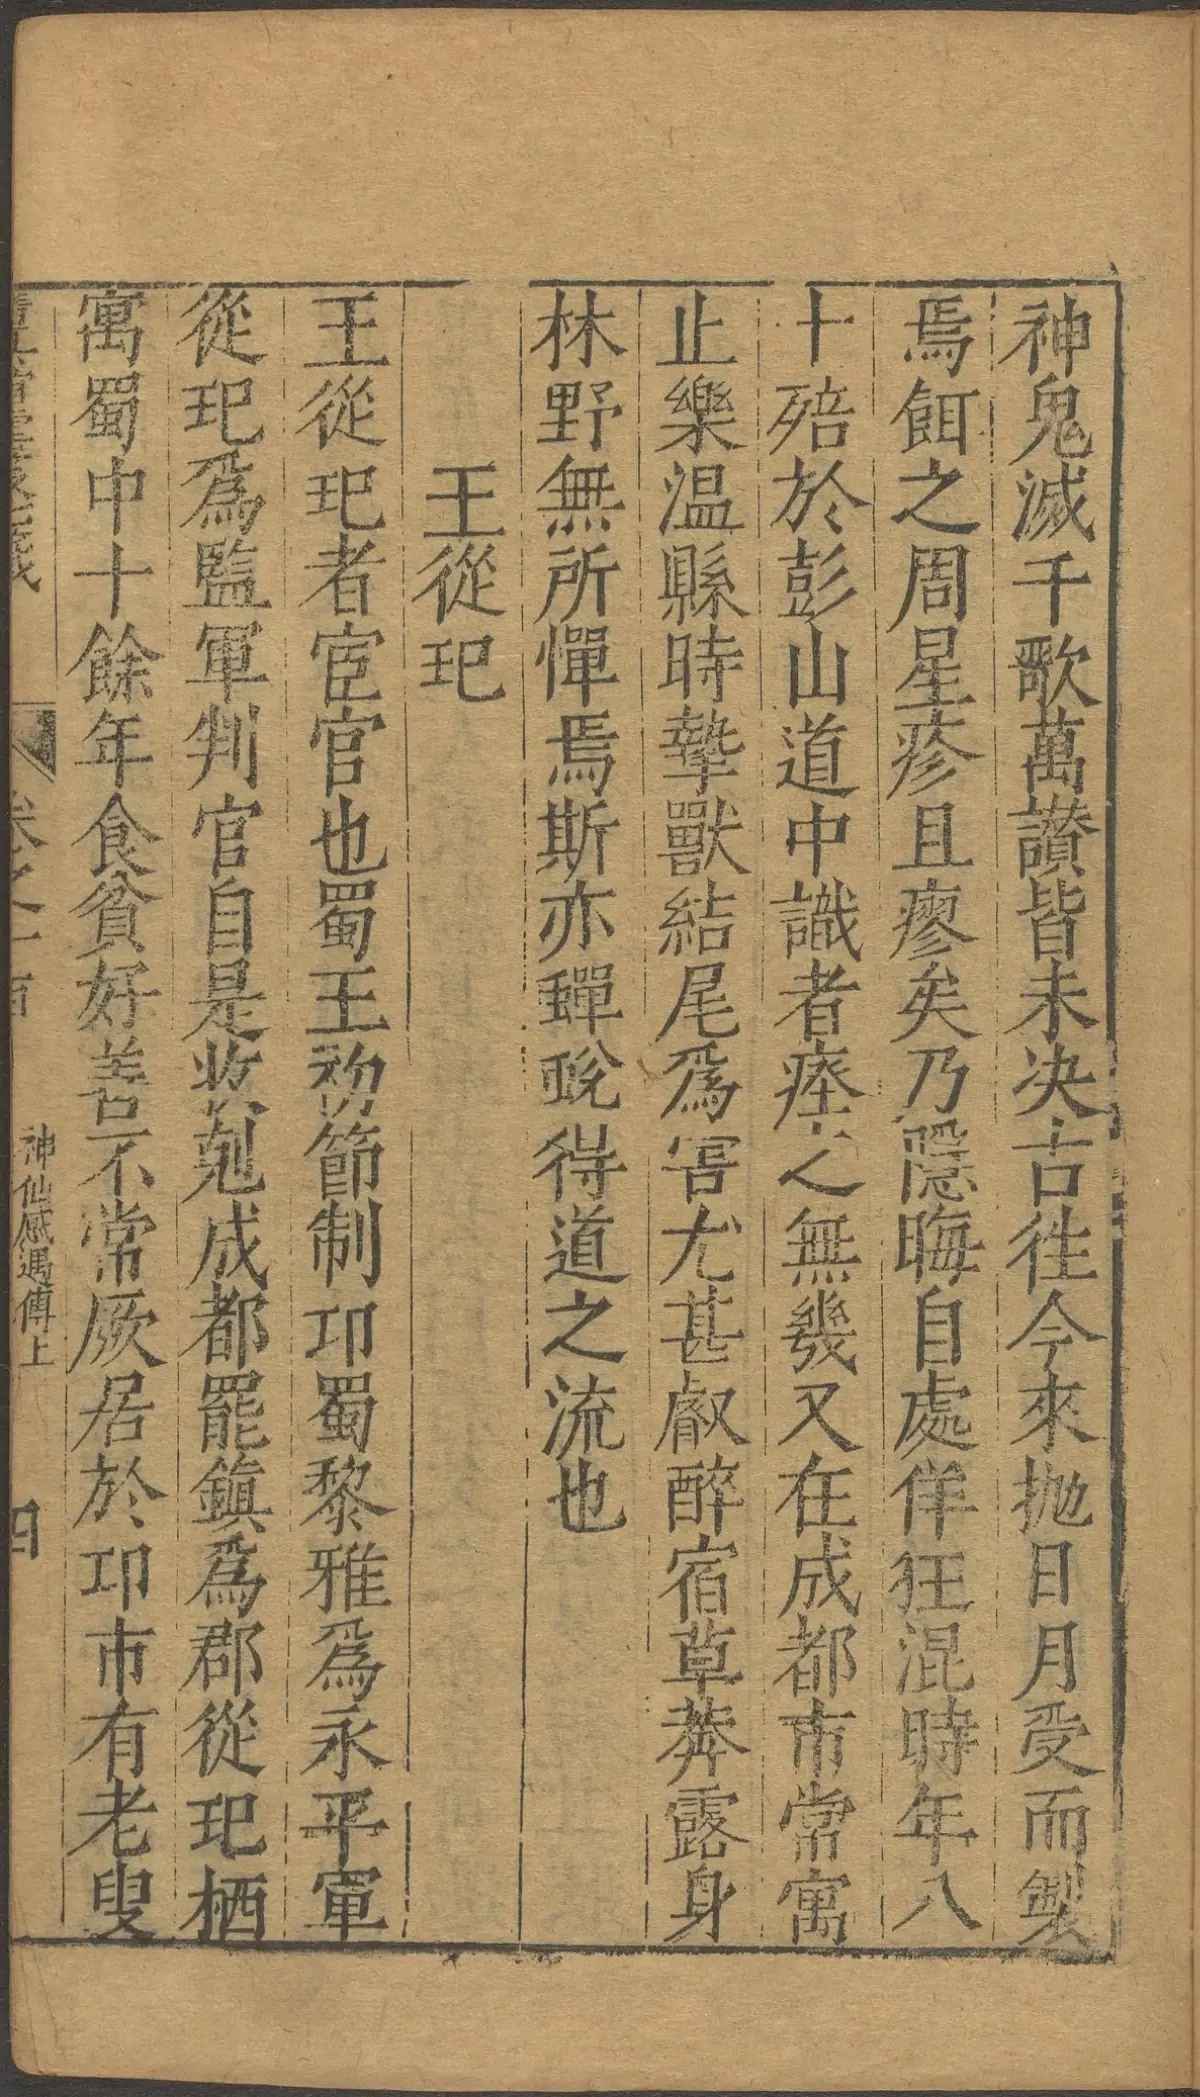 神鬼滅千歌萬讃皆未决古徃今來拋日月受而製
焉餌之周星疹且瘳矣乃隱晦自處佯狂混時年八
十殕於彭山道中識者瘞之無幾又在成都市常寓
止樂温縣時摯獸結尾為害尤甚叡醉宿草莽露身
林野無所憚焉斯亦蟬蛻得道之流也
王從玘
王從玘者宦官也蜀王初節制卭蜀黎雅為永平軍
從玘為監軍判官自是收剋成都罷鎮為郡從玘栖
寓蜀中十餘年食貧好善不常厥居於卭市有老叟
卷之一百
神仙感遇傳上
四